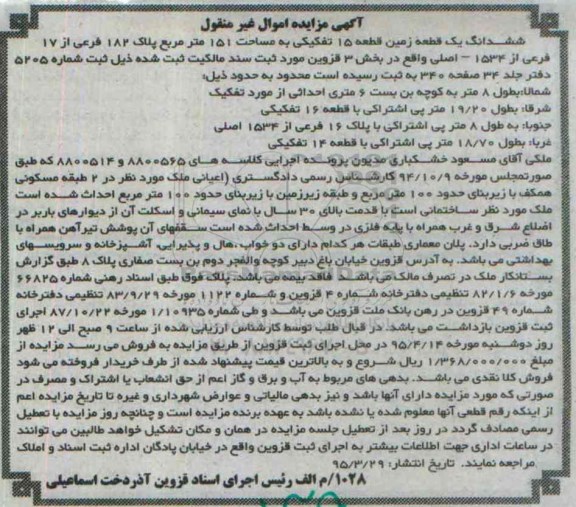 آگهی مزایده اموال غیر منقول
ششدانگ یک قطعه زمین قطعه ۱۵ تفکیکی به مساحت ۱۵۱ متر مربع پلاک ۱۸۲ فرعی از ۱۷
فرعی از ۱۵۳۴ – اصلی واقع در بخش ۳ قزوین مورد ثبت سند مالکیت ثبت شده ذیل ثبت شماره ۵۲۰۵
دفتر جلد ۳۴ صفحه ۳۴۰ به ثبت رسیده است محدود به حدود ذیل:
شمالا:بطول ۸ متر به کوچه بن بست ۶ متری احداثی از مورد تفکیک
شرقا: بطول ۱۹/۲۰ متر پی اشتراکی با قطعه ۱۶ تفکیکی
جنوبا: به طول ۸ متر پی اشتراکی با پلاک ۱۶ فرعی از ۱۵۳۴ اصلی
غربا: بطول ۱۸/۷۰ متر پی اشتراکی با قطعه ۱۴ تفکیکی
ملکی آقای مسعود خشکباری مدیون پرونده اجرایی کلاسه های ۸۸۰۰۵۶۵ و ۸۸۰۰۵۱۴ که طبق
صورتمجلس مورخه ۹۴/۱۰/۹ کارشناس رسمی دادگستری (اعیانی ملک مورد نظر در ۲ طبقه مسکونی
همکف با زیربنای حدود ۱۰۰ متر مربع و طبقه زیرزمین با زیربنای حدود ۱۰۰ متر مربع احداث شده است
ملک مورد نظر ساختمانی است با قدمت بالای ۳۰ سال با نمای سیمانی و اسکلت آن از دیوارهای باربر در
اضلاع شرق و غرب همراه با پایه فلزی در وسط احداث شده است سقفهای آن پوشش تیرآهن همراه با
طاق ضربی دارد. پلان معماری طبقات هر کدام دارای دو خواب،هال و پذیرایی، آشپزخانه و سرویسهای
بهداشتی می باشد. به آدرس قزوین خیابان باغ دبیر کوچه والفجر دوم بن بست صفاری پلاک ۸ طبق گزارش
بستانکار ملک در تصرف مالک می باشد فاقد بیمه می باشد. پلاک فوق طبق اسناد رهنی شماره ۶۶۸۲۵
مورخه ۸۲/۱/۶ تنظیمی دفترخانه شماره ۴ قزوین و شماره ۱۱۲۲ مورخه ۸۳/۹/۲۹ تنظیمی دفترخانه
شماره ۴۹ قزوین در رهن بانک ملت قزوین می باشد و طی شماره ۱/۱۰۹۳۵ مورخه ۸۷/۱۰/۲۲ اجرای
ثبت قزوین بازداشت می باشد. در قبال طلب توسط کارشناس ارزیابی شده از ساعت ۹ صبح الی ۱۲ ظهر
روز دوشنبه مورخه ۹۵/۴/۱۴ در محل اجرای ثبت قزوین از طریق مزایده به فروش می رسد مزایده از
مبلغ ۱/۳۶۸/۰۰۰/۰۰۰ ریال شروع و به بالاترین قیمت پیشنهاد شده از طرف خریدار فروخته می شود
فروش کلا نقدی می باشد. بدهی های مربوط به آب و برق و گاز اعم از حق انشعاب یا اشتراک و مصرف در
صورتی که مورد مزایده دارای آنها باشد و نیز بدهی مالیاتی و عوارض شهرداری و غیره تا تاریخ مزایده اعم
از اینکه رقم قطعی آنها معلوم شده یا نشده باشد به عهده برنده مزایده است و چنانچه روز مزایده با تعطیل
رسمی مصادف گردد در روز بعد از تعطیل جلسه مزایده در همان و مکان تشکیل خواهد طالبین می توانند
در ساعات اداری جهت اطلاعات بیشتر به اجرای ثبت قزوین واقع در خیابان پادگان اداره ثبت اسناد و املاک
مراجعه نمایند. تاریخ انتشار: ۹۵/۳/۲۹
۱۰۲۸/م الف رئیس اجرای اسناد قزوین آذردخت اسماعیلی